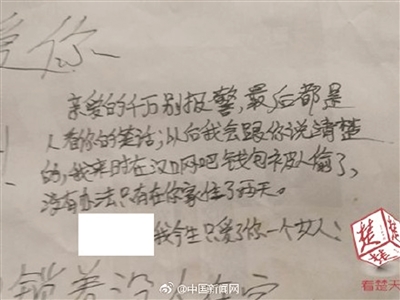 爱你
亲爱的千万别报警,最后都是
人看你的笑话;以后我会跟你说清楚
的,我来时在汉口网吧钱包被人偷了,
没有办法只有在你家住了两天。
我今生只爱了你一个女人:
锁着没
@中国新闻网
看楚天